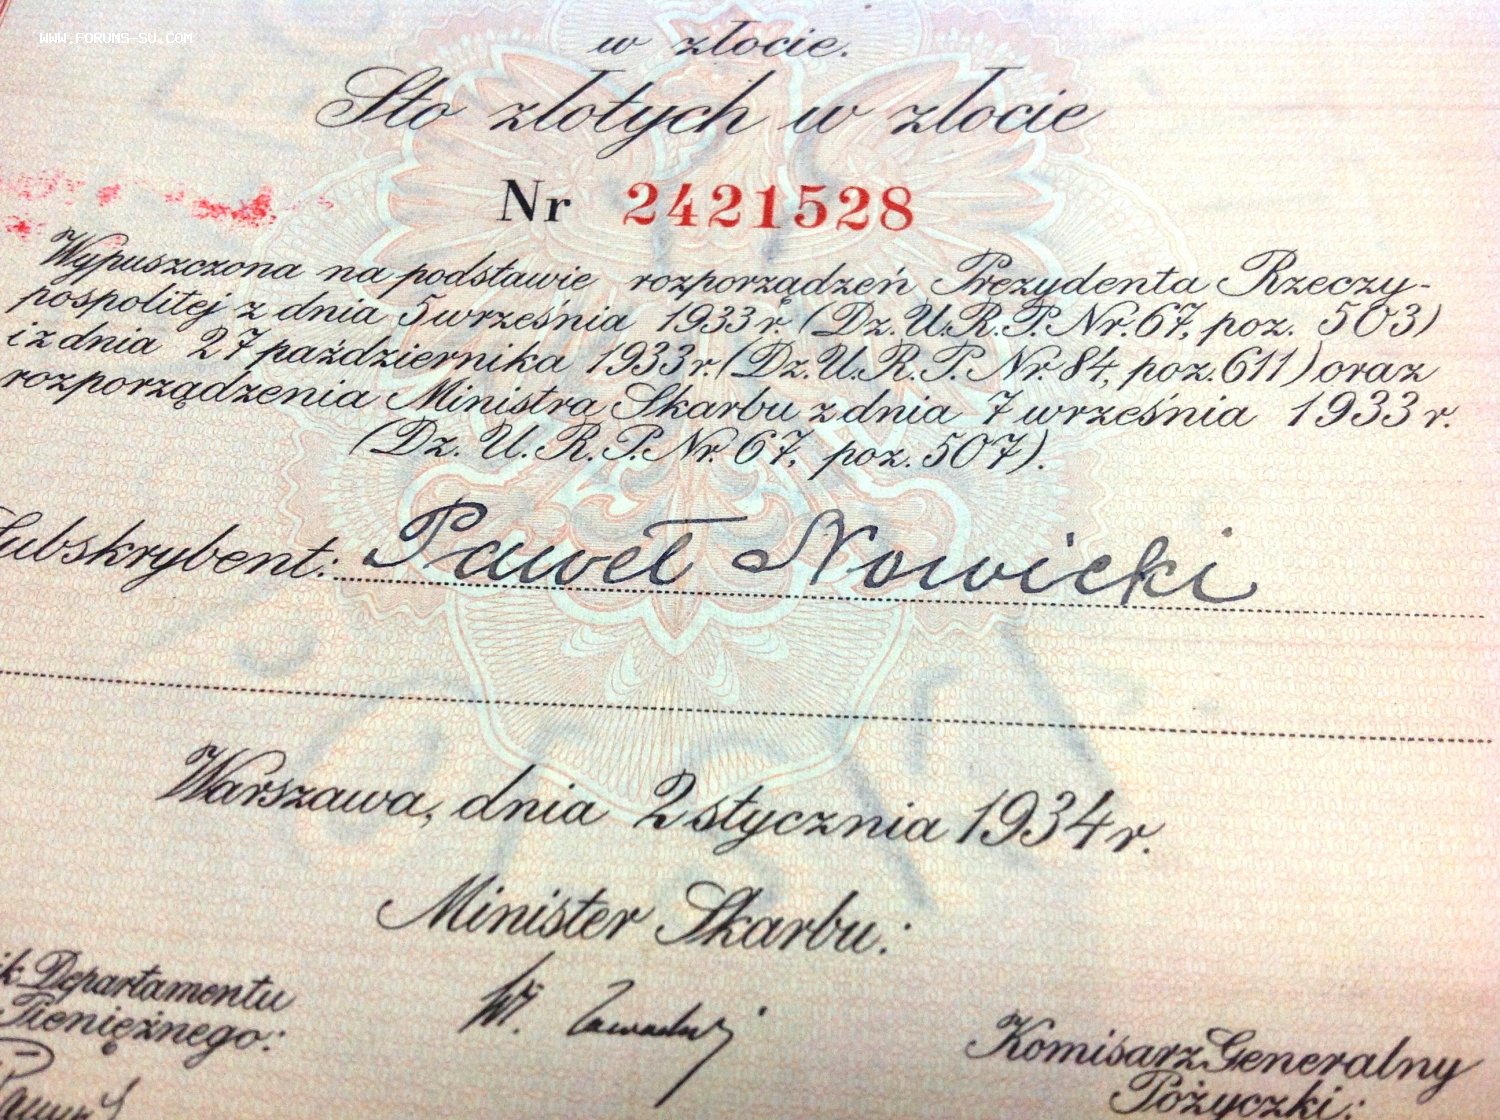 WWW.FORUMS-SU.COM
w złocie.
Sto złotych w złocie
Nr 2421528
Wypuszczona na podstawie rozporządzeń Prezydenta Rzeczy-
pospolitej z dnia 5 września 1933 r. (Dz. U. R. P. Nr. 67, poz. 503)
i z dnia 27 października 1933 r. (Dz. U. R. P. Nr. 84, poz. 611) oraz
rozporządzenia Ministra Skarbu z dnia 7 września 1933 r.
(Dz. U. R. P. Nr. 67, poz. 507).
Subskrybent: Paweł Nowicki
Warszawa, dnia 2 stycznia 1934 r.
Minister Skarbu:
ik Departamentu
Pieniężnego:
Wł. Zawadzki
Komisarz Generalny
Pożyczki: